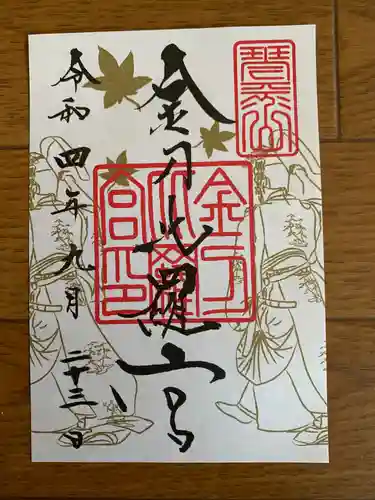 琴平山
金刀比羅宮
金刀
比羅
宮印
令和四年九月二十三日